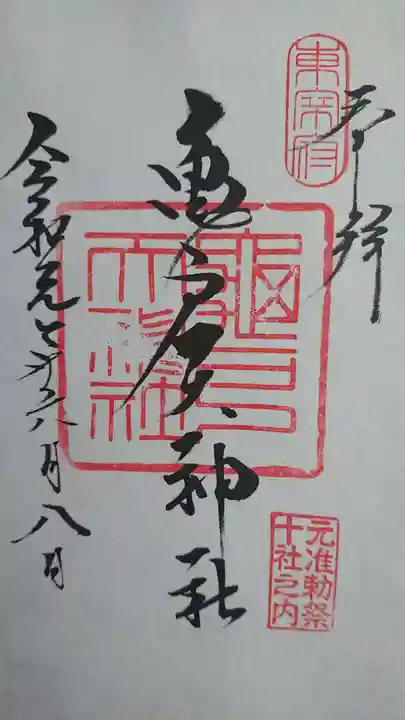 奉拝
東京府
亀戸天神社
元准勅祭
十社之内
令和元年六月八日